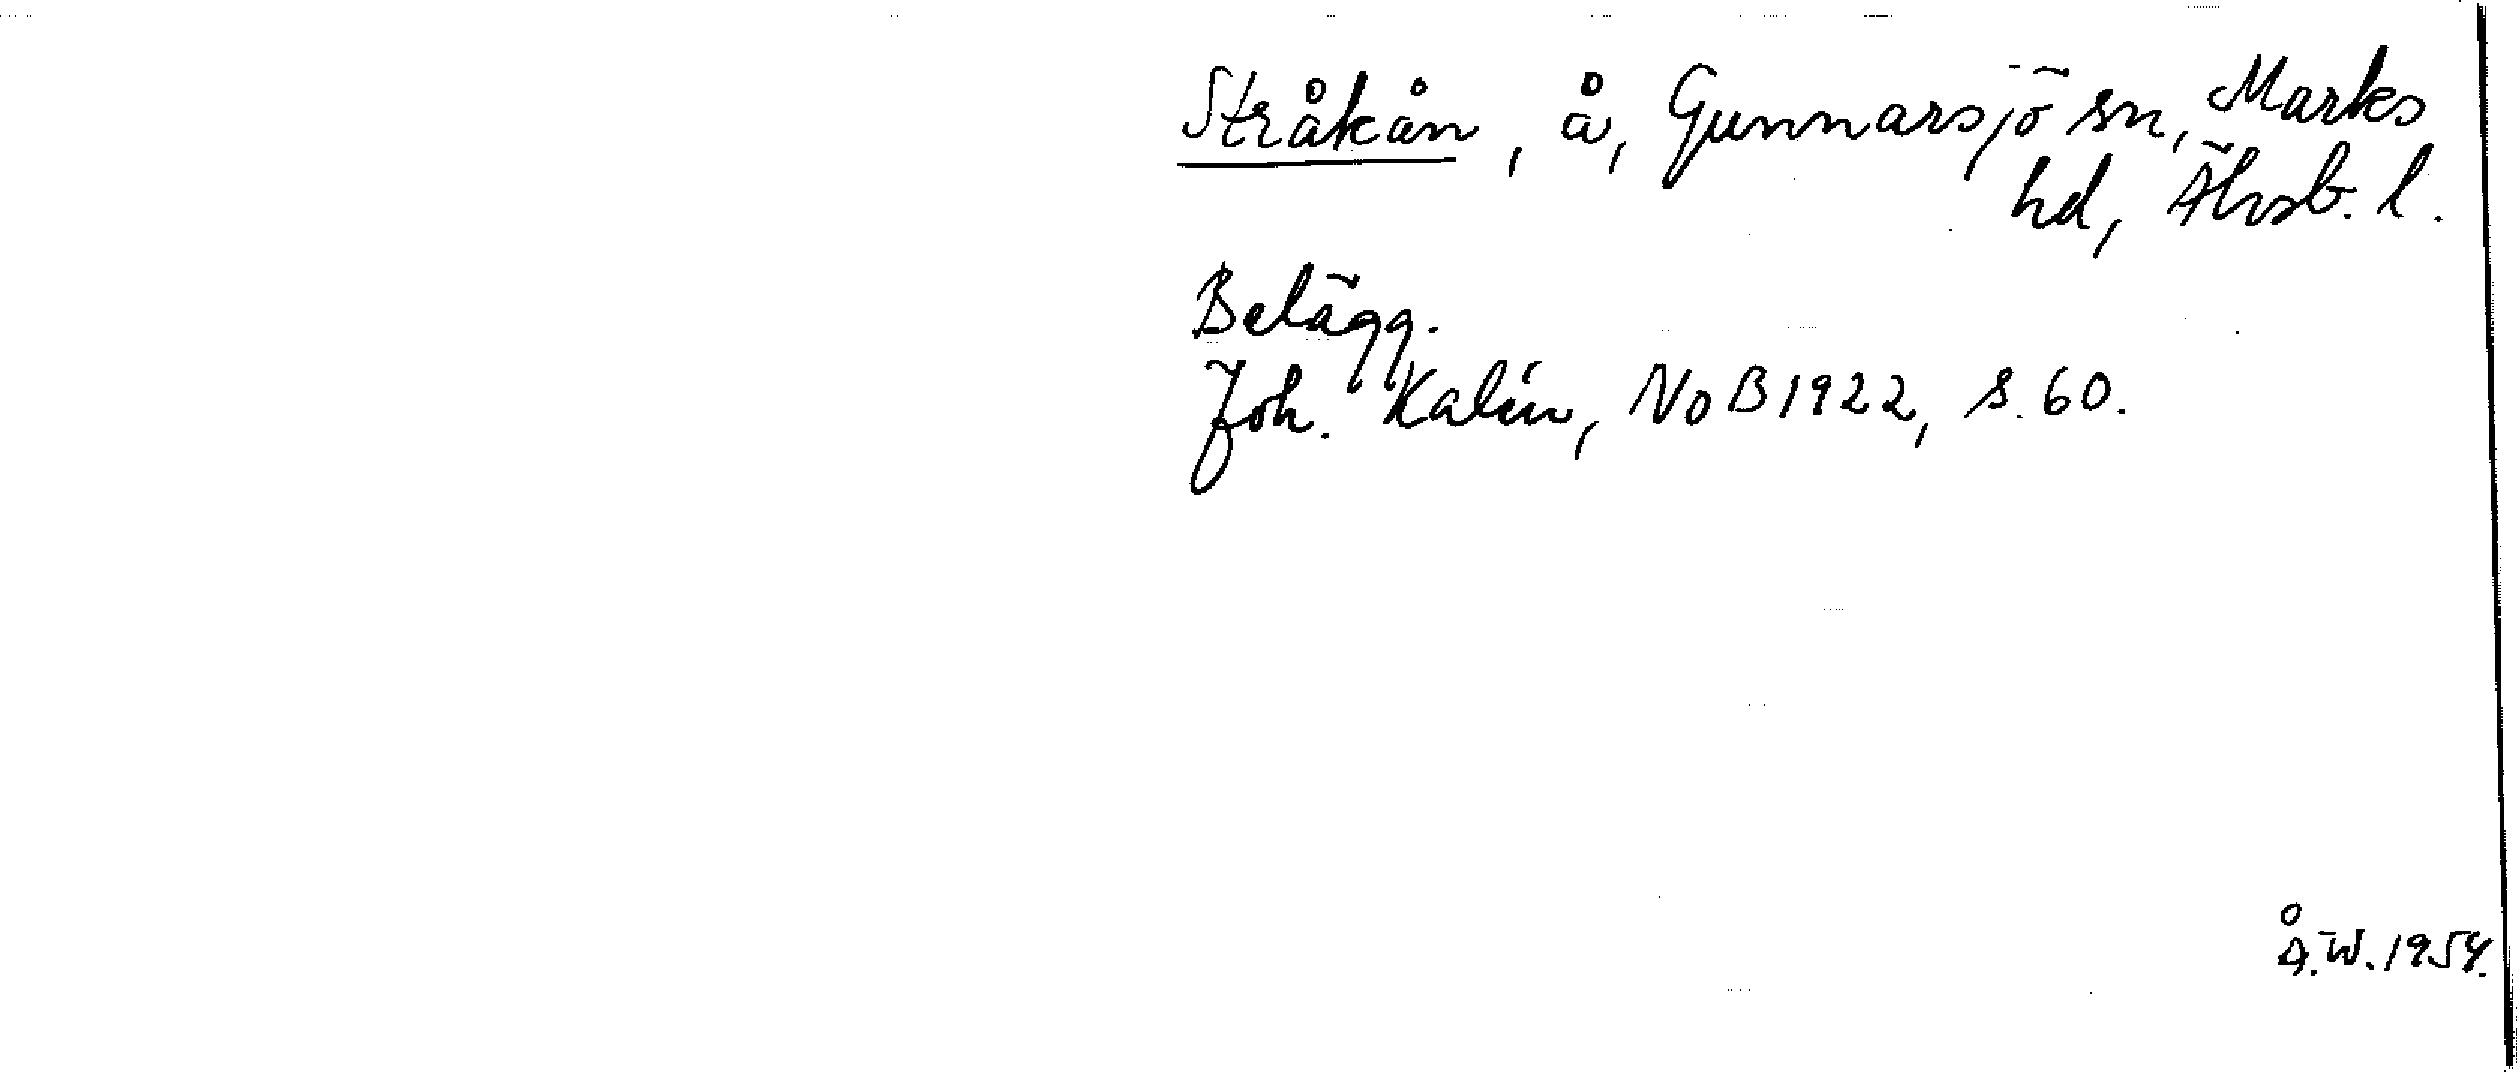 Stråkån, å, Gunnarsjö sn, Marks
hd, Älvsb. l.
Belägg.
Joh. Kalén, NoB 1922, s. 60.
Å.W. 1954.